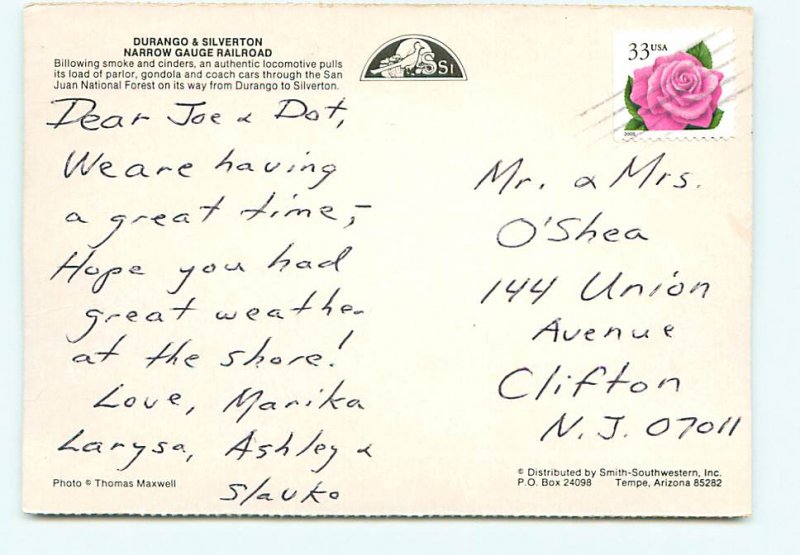 DURANGO & SILVERTON
NARROW GAUGE RAILROAD
Billowing smoke and cinders, an authentic locomotive pulls
its load of parlor, gondola and coach cars through the San
Juan National Forest on its way from Durango to Silverton.
SSI
33USA
2000
Dear Joe & Dot,
We are having
a great time,-
Hope you had
great weather
at the shore!
Love, Marika
Larysa, Ashley &
Slavko
Mr. & Mrs.
O'Shea
144 Union
Avenue
Clifton
N.J. 07011
Photo © Thomas Maxwell
© Distributed by Smith-Southwestern, Inc.
P.O. Box 24098 Tempe, Arizona 85282